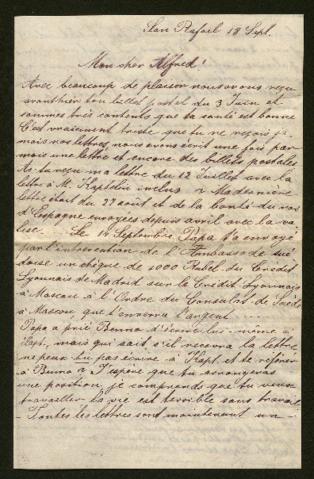 San Rafael 18 Sept.
Mon cher Alfred!
Avec beaucoup de plaisir nous avons reçu
avanthier ton billet postal du 3 Juin et
sommes très contents que ta santé est bonne
C'est vraiement triste que tu ne reçois ja-
mais nos lettres, nous avons écrit une fois par
mois une lettre et encore des billets postales
As-tu reçu ma lettre du 12 Juillet avec la
lettre à M. Kaptelin inclus? Ma dernière
lettre était du 22 août et de la Bonté du roi
d'Espagne envoyées depuis avril avec la va-
lise. Le 14 Septembre Papa t'a envoyé
par l'intervention de l'Ambassade sué-
doise un chèque de 1000 Rubel du Crédit
Lyonnais de Madrid sur le Crédit Lyonnais
à Moscou à l'Ordre du Consulat de Suède
à Moscou que t'enverra l'argent
Papa a prié Benno d'écrire lui-même à
Kapt, mais qui sait s'il recevra la lettre
ne peux-tu pas écrire à Kapt. et te référer
à Benno? J'espère que tu arrangeras
une position, je comprends que tu veux
travailler la vie est terrible sans travail
- Toutes les lettres sont maintenant un -